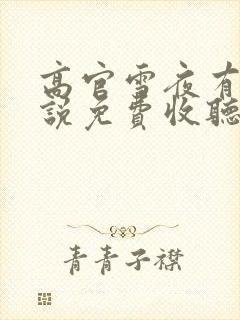 高官雪夜有
說免費收聽
青青子襟